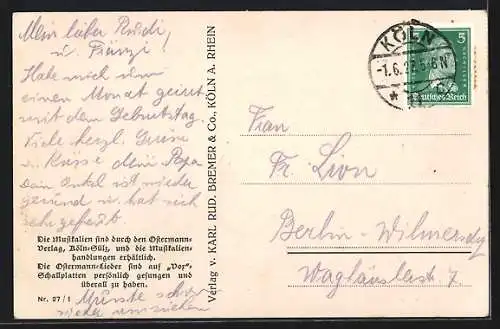 Mein lieber Rudi,
u. Fränzi!
Habe mich um
einen Monat geirrt
mit dem Geburtstag.
Viele herzl. Grüsse
u. Küsse Dein Papa
Dein Onkel ist wieder
gesund u. hat sich
sehr gefreut
Die Musikalien sind durch den Ostermann-
Verlag, Köln-Sülz, und die Musikalien-
handlungen erhältlich.
Die Ostermann-Lieder sind auf „Vox“-
Schallplatten persönlich gesungen und
überall zu haben.
Nr. 27/1
Musste schon
wieder umziehen
Verlag v. KARL RUD. BREMER & Co., KÖLN A. RHEIN
KÖLN
-1.6.27.5-6N
5
Deutsches Reich
Frau
Fr. Lion
Berlin-Wilmersdf
Waghäuslerst. 7